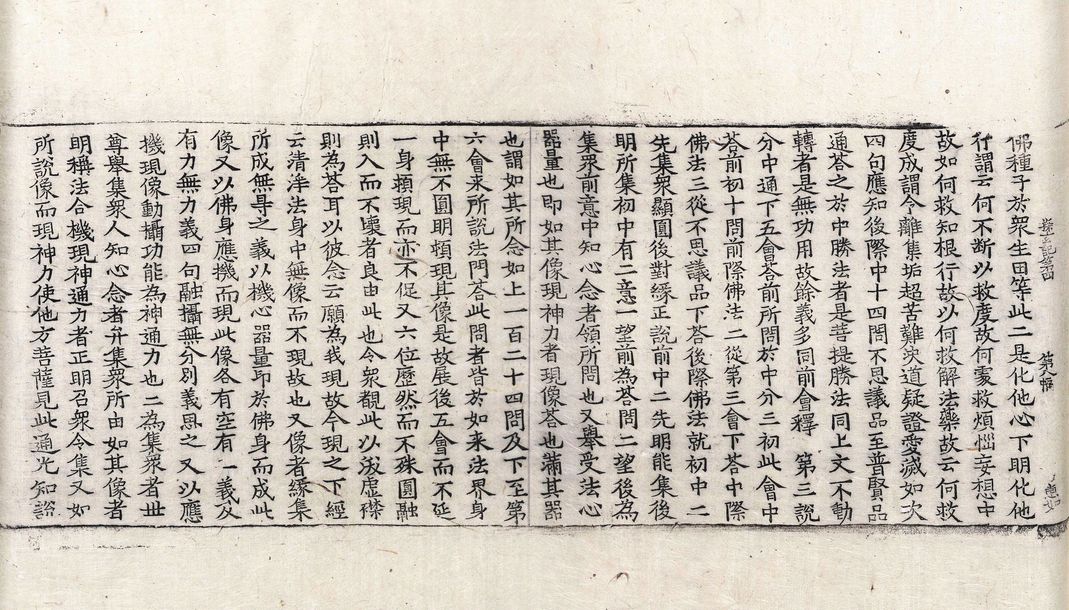 佛種子於衆生田等此二是化他心下明化他
行謂云何不断以救度故何䨱救煩惱妄想中
故如何救知根行故以何救解法藥故云何救
度成謂令離集垢超苦難决道疑證愛滅如次
四句應知後際中十四問不思議品至普賢品
通荅之於中勝法者是菩提勝法同上文不動
轉者是無功用故餘義多同前會釋 第三説
分中通下五會荅前所問於中分三初此會中
荅前初十問前際佛法二從第三會下荅中際
佛法三從不思議品下荅後際佛法就初中二
先集衆顯圓後對緣正説前中二先明能集後
明所集初中有二意一望前為荅問二望後為
集衆前意中知心念者領所問也又舉受法心
器量也即如其像現神力者現像荅也滿其器
也謂如其所念如上一百二十四問及下至第
六會来所説法門荅此問者皆於如来法界身
中無不圓明頓現其像是故展後五會而不延
一身頓現而亦不促又六位歷然而不殊圓融
則入而不壞者良由此也令衆覩此以淺虚襟
則為荅耳以彼念云願為我現故今現之下經
云清淨法身中無像而不現故也又像者緣集
所成無导之義以機心器量印於佛身而成此
像又以佛身應機而現此像各有空有一義及
有力無力義四句融攝無分別義思之又以應
機現像動攝功能為神通力也二為集衆者世
尊舉集衆人知心念者弁集衆所由如其像者
明稱法合機現神通力者正明召衆令集又如
所説像而現神力使他方菩薩見此通光知説